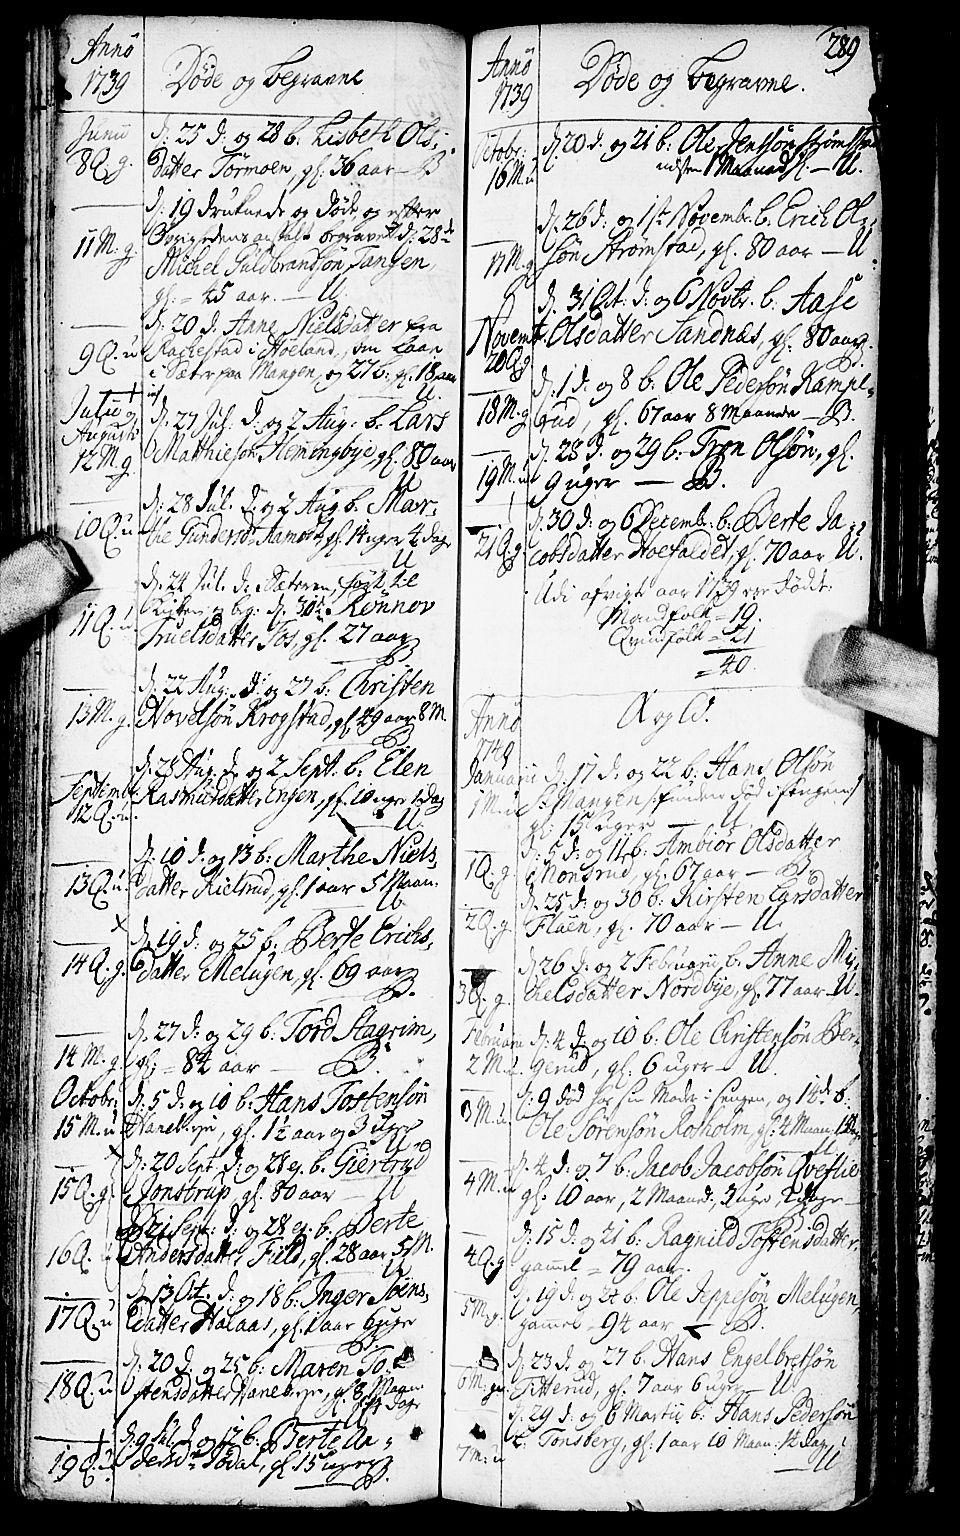 Anno
1739
Døde og begravne
Junii
8 Q. g.
d: 25 d: og 28 b: Lisbeth Ols-
datter Tormoen, gl. 36 aar – B
11 M. g.
d: 19 druknede og døde og efter
Øvrighedens anstalt begravet d: 28de
Michel Guldbrandsøn Tangen
gl. = 45 aar. — U.
9 Q. u
d: 20 d. Anne Nielsdatter fra
Rachestad i Høeland, om Laan
i Sæter paa Mangen, og 27 b: gl. 18 aar
U.
Julii og
Augusti
12 M. g.
d: 27 Jul. d. og 2 Aug. b. Lars
Matthiesøn Hemingbye, gl. 80 aar
U
10 Q. u.
d: 28 Jul. d. og 2 Aug b. Mar-
the Gundersd. Aamodt gl. 14 uger 4 dage
U
11 Q. u.
d: 24 Jul. d. Sæteren, ført til
Kirken og beg: d. 30te Rønnov
Truelsdatter Fos, gl. 27 aar
B
13 M. g.
d: 22 Aug. d: og 27 b: Christen
Novelsøn Krogstad, gl. 49 aar 8 M.
B
Septemb:
12 Q. u.
d: 28 Aug. d. og 2 Sept. b. Elen
Rasmusdatter Engen, gl. 10 uger 1 dag
— U.
13 Q. u.
d: 10 d. og 13 b: Marthe Niels-
datter Kielsrud, gl. 1 aar 5 Maan.
U
14 Q. g.
d: 19 d: og 25 b: Berte Erichs-
datter Melugen, gl. 69 aar
B.
14 M. g
d: 27 d: og 29 b: Tord Stagrim,
gl. = 84 aar — B.
Octobr:
15 M. u
d: 5 d: og 10 b: Hans Tostensøn
Hanebye, gl. 1½ aar og 3 uger
U
15 Q. g.
d: 20 Sept d: og 28 b. Giertrud
Jonstrup, gl. 80 aar — U
16 Q.
d: 21 Sept: d: og 28 b. Berte
Andersdatter Field, gl. 28 aar 5 M.
17 Q. u
d: 13 Oct. d: og 18 b: Inger Joens-
datter Halaas, gl. 1 aar 6 uger
B
18 Q. u
d: 20 d: og 25 b: Maren To-
stensdatter Hanebye, gl. 8 Maan
4 dage
U
19 Q. u.
d: 9 Jul d. og 12 b: Berte An-
dersd. Sødal, gl. 15 uger B.
289
Anno
1739
Døde og begravne.
Octobr:
16 M. u
d: 20 d. og 21 b: Ole Jensøn Strømstad
næsten 1 Maaned gl. — U.
17 M. g
d: 26 d. og 1ste Novembr. b. Erich Ols-
søn Strømstad, gl. 80 aar — U.
Novemb.
20 Q g
d: 31 Oct: d: og 6 Novbr: b: Aase
Olsdatter Sandnæs, gl. 80 aar
B.
18 M. g
d: 1 d: og 8 b: Ole Pedersøn Kampe-
rud, gl. 67 aar 8 Maaneder — B.
19 M. u
d: 28 d. og 29 b: Tron Olsøn, gl.
9 uger — B.
21 Q. g.
d: 30 d: og 6 Decemb: b: Berte Ja-
cobsdatter Hoefaldet, gl. 70 aar U.
Udi afvigte aar 1739 ere døde
Mandfolk = 19.
Qvindfolk = 21
= 40.
Anno
1740
A og D.
Januarii
1 M. u
d: 17 d: og 22 b: Hans Olsøn
S. Mangen /: funden død i sengen :/
gl. 15 uger — U.
1 Q. g.
d: 5 d: og 11 b: Ambiør Olsdatter
Monsrud, gl. 67 aar — B.
2 Q. g.
d: 25 d: og 30 b: Kirsten Larsdatter
Flaen, gl. 70 aar — U.
3 Q. g.
d: 26 d: og 2 Februarii b. Anne Mi-
chelsdatter Nordbye, gl. 77 aar U.
Februarii
2 M. u.
d: 4 d: og 10 b: Ole Christensøn Ber-
gerud, gl. 6 uger — U.
3 M. u.
d: 9 død hos sin Moder i sengen, og 14de b:
Ole Sørensøn Rosholm, gl. 4 Maan. 1 Dag
U
4 M. u
d: 4 d: og 7 b: Jacob Jacobsøn Qvestie
gl. 10 aar, 2 Maaned. 3 uger 2 dage —
4 Q. g
d: 15 d: og 21 b: Ragnild Tostensdatter,
gamel = 79 aar.
5 M. g.
d: 19 d: og 24 b: Ole Jeppesøn Melugen,
gamel = 94 aar — B.
6 M.
d: 23 d: og 27 b: Hans Engelbretsøn
Titterud, gl. 7 aar 6 uger — U.
7 M. u
d: 29 d: og 6 Martii b: Hans Pedersøn
Tonsberg, gl. 1 aar 10 Maan. 14 dage
— U